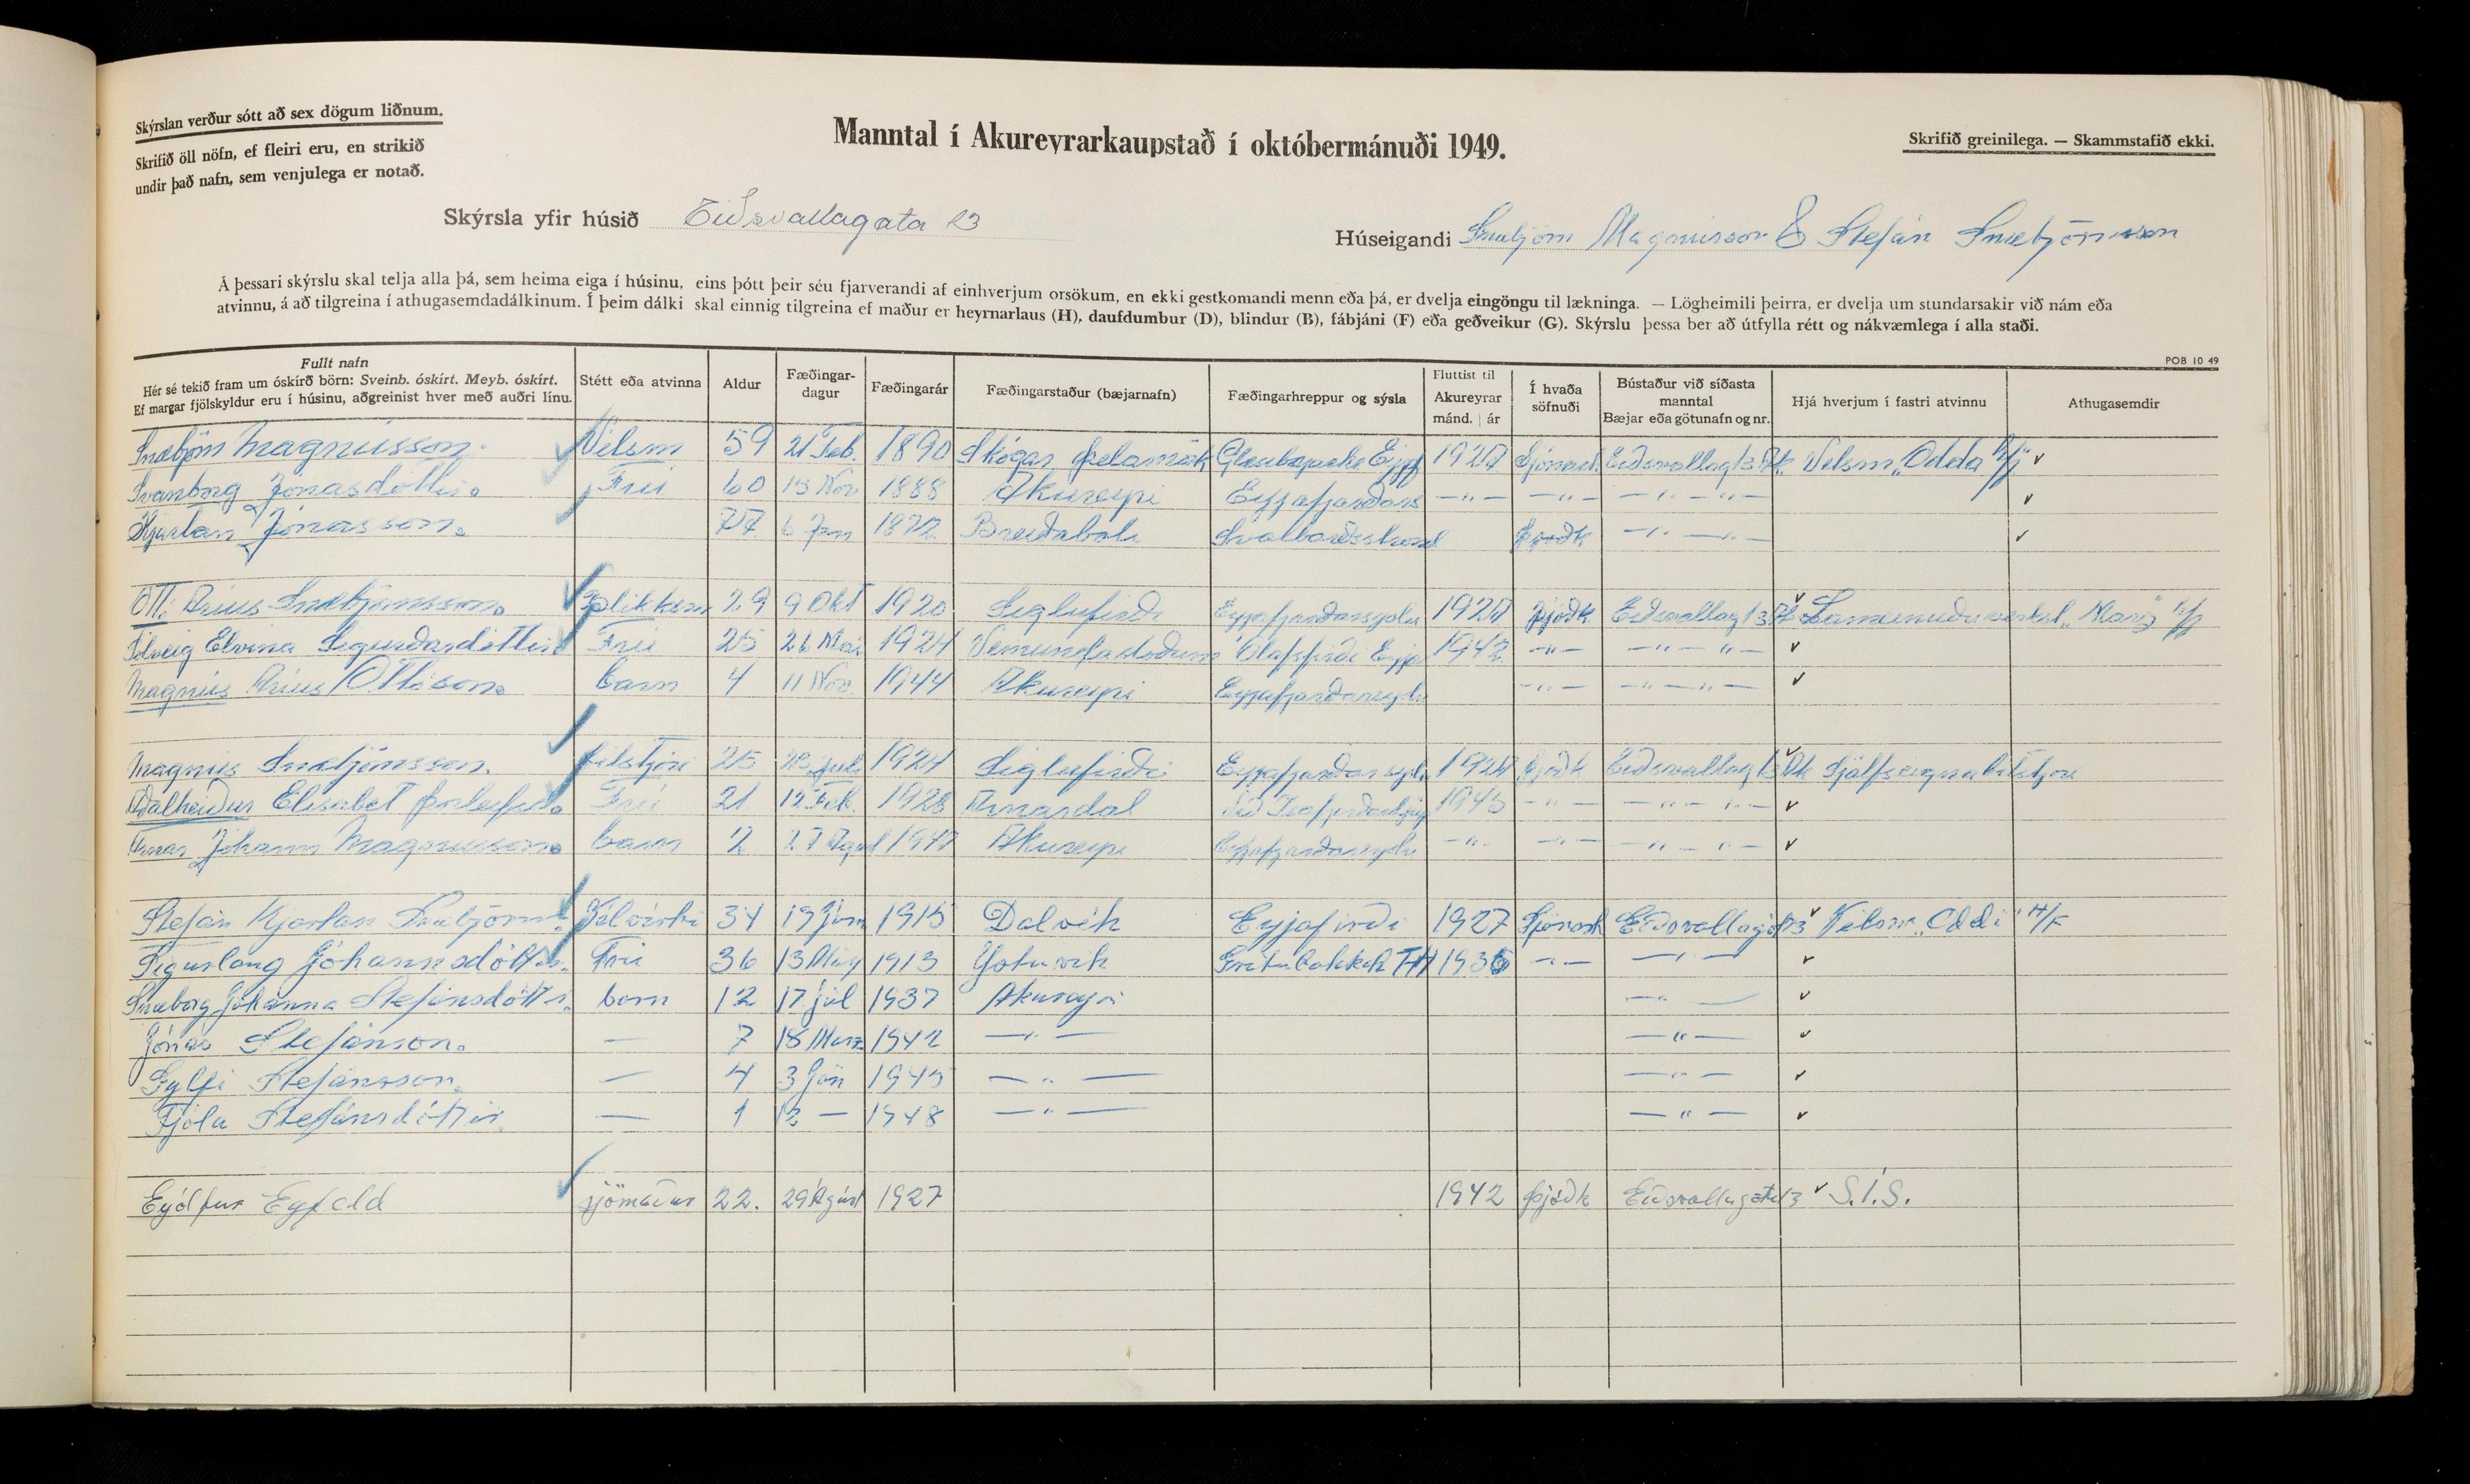 Skýrslan verður sótt að sex dögum liðnum.
Skrifið öll nöfn, ef fleiri eru, en strikið
undir það nafn, sem venjulega er notað.
Manntal í Akureyrarkaupstað í októbermánuði 1949.
Skrifið greinilega. — Skammstafið ekki.
Skýrsla yfir húsið Eiðsvallagata 13
Húseigandi Snæbjörn Magnússon & Stefán Snæbjörnsson
Á þessari skýrslu skal telja alla þá, sem heima eiga í húsinu, eins þótt þeir séu fjarverandi af einhverjum orsökum, en ekki gestkomandi menn eða þá, er dvelja eingöngu til lækninga. — Lögheimili þeirra, er dvelja um stundarsakir við nám eða
atvinnu, á að tilgreina í athugasemdadálkinum. Í þeim dálki skal einnig tilgreina ef maður er heyrnarlaus (H), daufdumbur (D), blindur (B), fábjáni (F) eða geðveikur (G). Skýrslu þessa ber að útfylla rétt og nákvæmlega í alla staði.
POB 10 49
Fullt nafn
Hér sé tekið fram um óskírð börn: Sveinb. óskírt. Meyb. óskírt.
Ef margar fjölskyldur eru í húsinu, aðgreinist hver með auðri línu.
Stétt eða atvinna
Aldur
Fæðingar-
dagur
Fæðingarár
Fæðingarstaður (bæjarnafn)
Fæðingarhreppur og sýsla
Fluttist til
Akureyrar
mánd. | ár
Í hvaða
söfnuði
Bústaður við síðasta
manntal
Bæjar eða götunafn og nr.
Hjá hverjum í fastri atvinnu
Athugasemdir
Snæbjörn Magnússon. Vélsm 59 21 Feb. 1890 Skógar Þelamörk 1927 Sjónarh. Eiðsvallag 13 Ak. Velsm „Odda h/f"
Svanborg Jónasdóttir. Frú 60 15 Nov 1888 Akureyri Eyjafjarðars —"— —"— —"—"—
Kjartan Jónasson. 77 6 Jan 1872 Breiðaból Svalbarðsströnd Þjóðk —"—"—
Ottó Snæbjörnsson. 29 9 Okt 1920 Siglufirði Eyjafjarðarsýslu 1927 Þjóðk Eiðsvallag 13 Ak
Sólveig Elvina Sigurðardóttir Frú 25 26 Maí 1924 Ólafsfirði Eyja 1942 —"— —"—"—
Magnús Ottóson. barn 4 11 Nov. 1944 Akureyri Eyjafjarðarsýslu —"— —"—"—
Magnús Snæbjörnsson. bílstjóri 25 Júlí 1924 Siglufirði Eyjafjarðarsýslu 1927 Þjóðk Eiðsvallag 13 Ak Sjálfseignarbílstjóri
Aðalheiður Elísabet Frú 21 12 Feb. 1928 Arnardal 1945 —"— —"—"—
Jóhann Magnússon. barn 2 27 Ágúst 1947 Akureyri Eyjafjarðarsýslu —"— —"— —"—"—
Stefán Kjartan Snæbjörns. Vélvirki 34 19 Jan 1915 Dalvík Eyjafirði 1927 Sjónarh Eiðsvallagöt 13 Velsm. „Oddi" H/F
Sigurlaug Jóhannsdóttir. Frú 36 13 1913 Grítubakkah TH 1935 —"— —"—
Snæborg Jóhanna Stefánsdóttir. born 12 17 júl 1937 Akureyri —"—
Jónas Stefánson. — 7 18 Marz 1942 —"— —"—
Gylfi Stefánsson. — 4 3 Jan 1945 —"— —"—
Fjóla Stefánsdóttir. — 1 12 — 1948 —"— —"—
Eyólfur Eyfeld sjómaður 22. 29 Ágúst 1927 1942 Þjóðk Eiðsvallagata 13 S.Í.S.